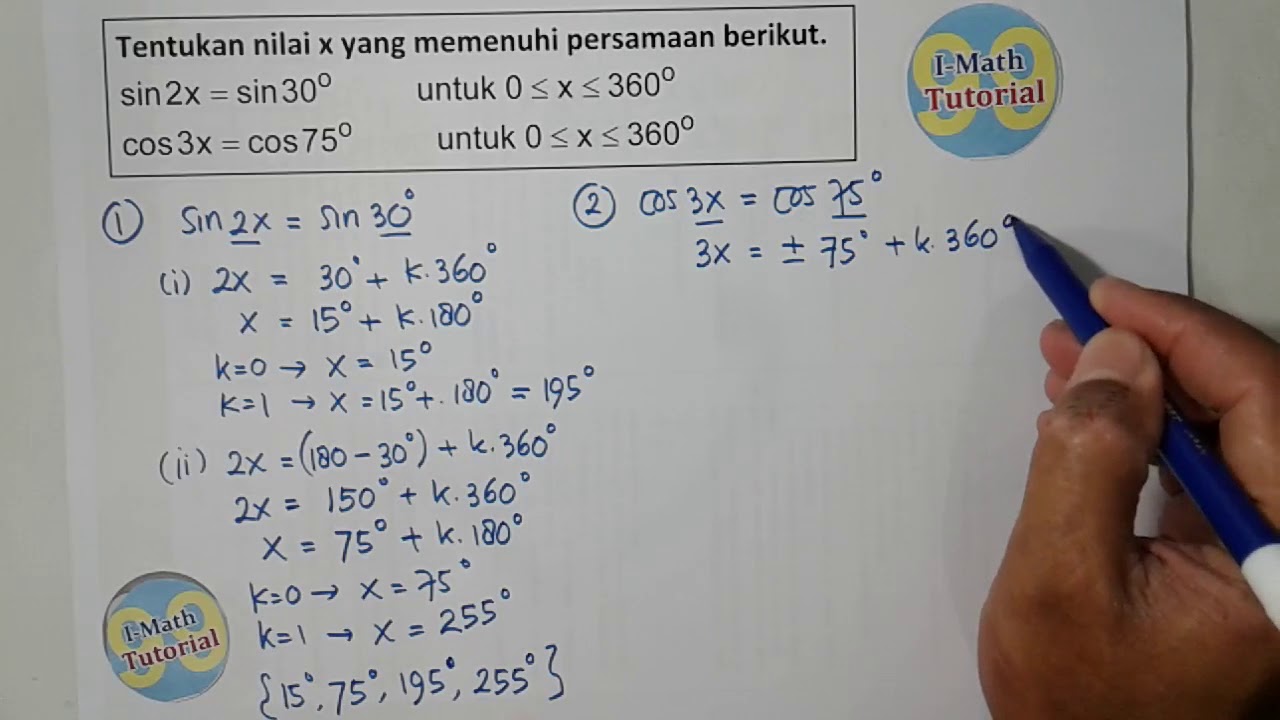 Tentukan nilai x yang memenuhi persamaan berikut.
sin2x = sin30⁰ untuk 0 ≤ x ≤ 360⁰
cos3x = cos75⁰ untuk 0 ≤ x ≤ 360⁰
I-Math
Tutorial
① Sin 2x = Sin 30°
(i) 2x = 30° + k.360°
x = 15° + k.180°
k=0 → x = 15°
k=1 → x = 15° + . 180° = 195°
(ii) 2x = (180 - 30°) + k.360°
2x = 150° + k.360°
x = 75° + k.180°
k=0 → x = 75°
k=1 → x = 255°
{15°, 75°, 195°, 255°}
② Cos 3x = Cos 75°
3x = ± 75° + k. 360°
I-Math
Tutorial